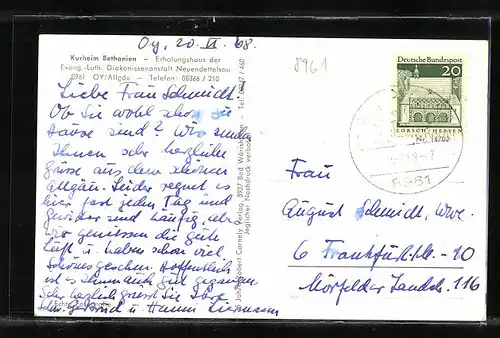 Oy, 20. VI. 68.
8961
Kurheim Bethanien – Erholungshaus der
Evang.-Luth. Diakonissenanstalt Neuendettelsau
8961 OY/Allgäu – Telefon 08366 / 210
Liebe Frau Schmidt.
Ob Sie wohl schon zu
Hause sind? Wir senden
Ihnen sehr herzliche
Grüsse aus dem schönen
Allgäu. Leider regnet es
hier fast jeden Tag und
Gewitter sind häufig, aber
wir geniessen die gute
Luft u. haben schon viel
Schönes gesehen. Hoffentlich
ist es Ihnen auch gut gegangen.
Sehr herzlich grüsst Sie Ihre
Gertrud u. Hanni
Cornely Verlag, 8937 Bad Wörishofen – Tel.
Jeglicher Nachdruck verboten
Deutsche Bundespost
20
LORSCH/HESSEN
8961
Frau
August Schmidt, Wwe.
6 Frankfurt/M.-10
Mörfelder Landstr. 116